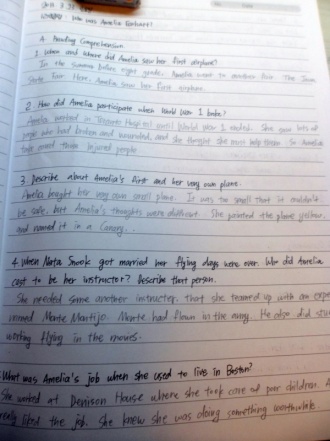 Who was Amelia Earhart?
A. Reading Comprehension.
1. When and where did Amelia saw her first airplane?
In the summer before eight grade, Amelia went to another fair. The Iowa
State Fair. Here, Amelia saw her first airplane.
2. How did Amelia participate when World War 1 broke?
Amelia worked in Hospital until World War 1 ended. She saw lots of
people who had broken and wounded, and she thought she must help them. So Amelia
take care them injured people.
3. Describe about Amelia's first and her very own plane.
Amelia bought her very own small plane. It was too small that it wouldn't
be safe, but Amelia's thoughts were different. She painted the plane yellow,
and named it in a Canary.
4. When Neta Snook got married her flying days were over. Who did Amelia
cost to be her instructor? Describe that person.
She needed some another instructor, that she teamed up with an expe
rienced Monte Montijo. Monte had flown in the army. He also did stu
working flying in the movies.
What was Amelia's job when she used to live in Boston?
She worked at Denison House where she took care of poor children. A
really liked the job. She knew she was doing something worthwhile.